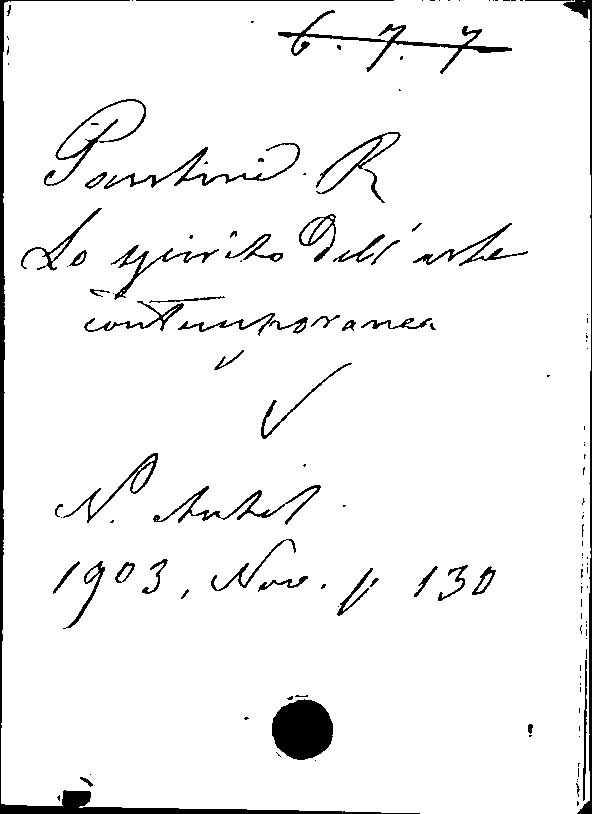 6. 7. 7
Pantini. R
Lo spirito dell'arte
contemporanea
N. Antol.
1903, Nov. p 130